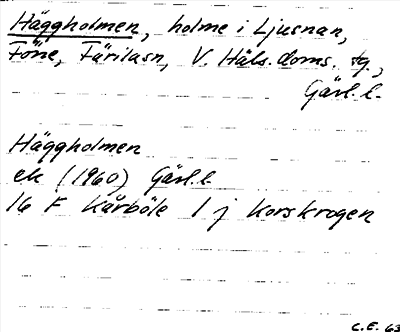 Häggholmen, holme i Ljusnan,
Föne, Färilasn, V. Häls. doms. tg,
Gävl. l.
Häggholmen
ek (1960) Gävl. l.
16 F Kårböle 1 j Korskrogen
C.E. 63